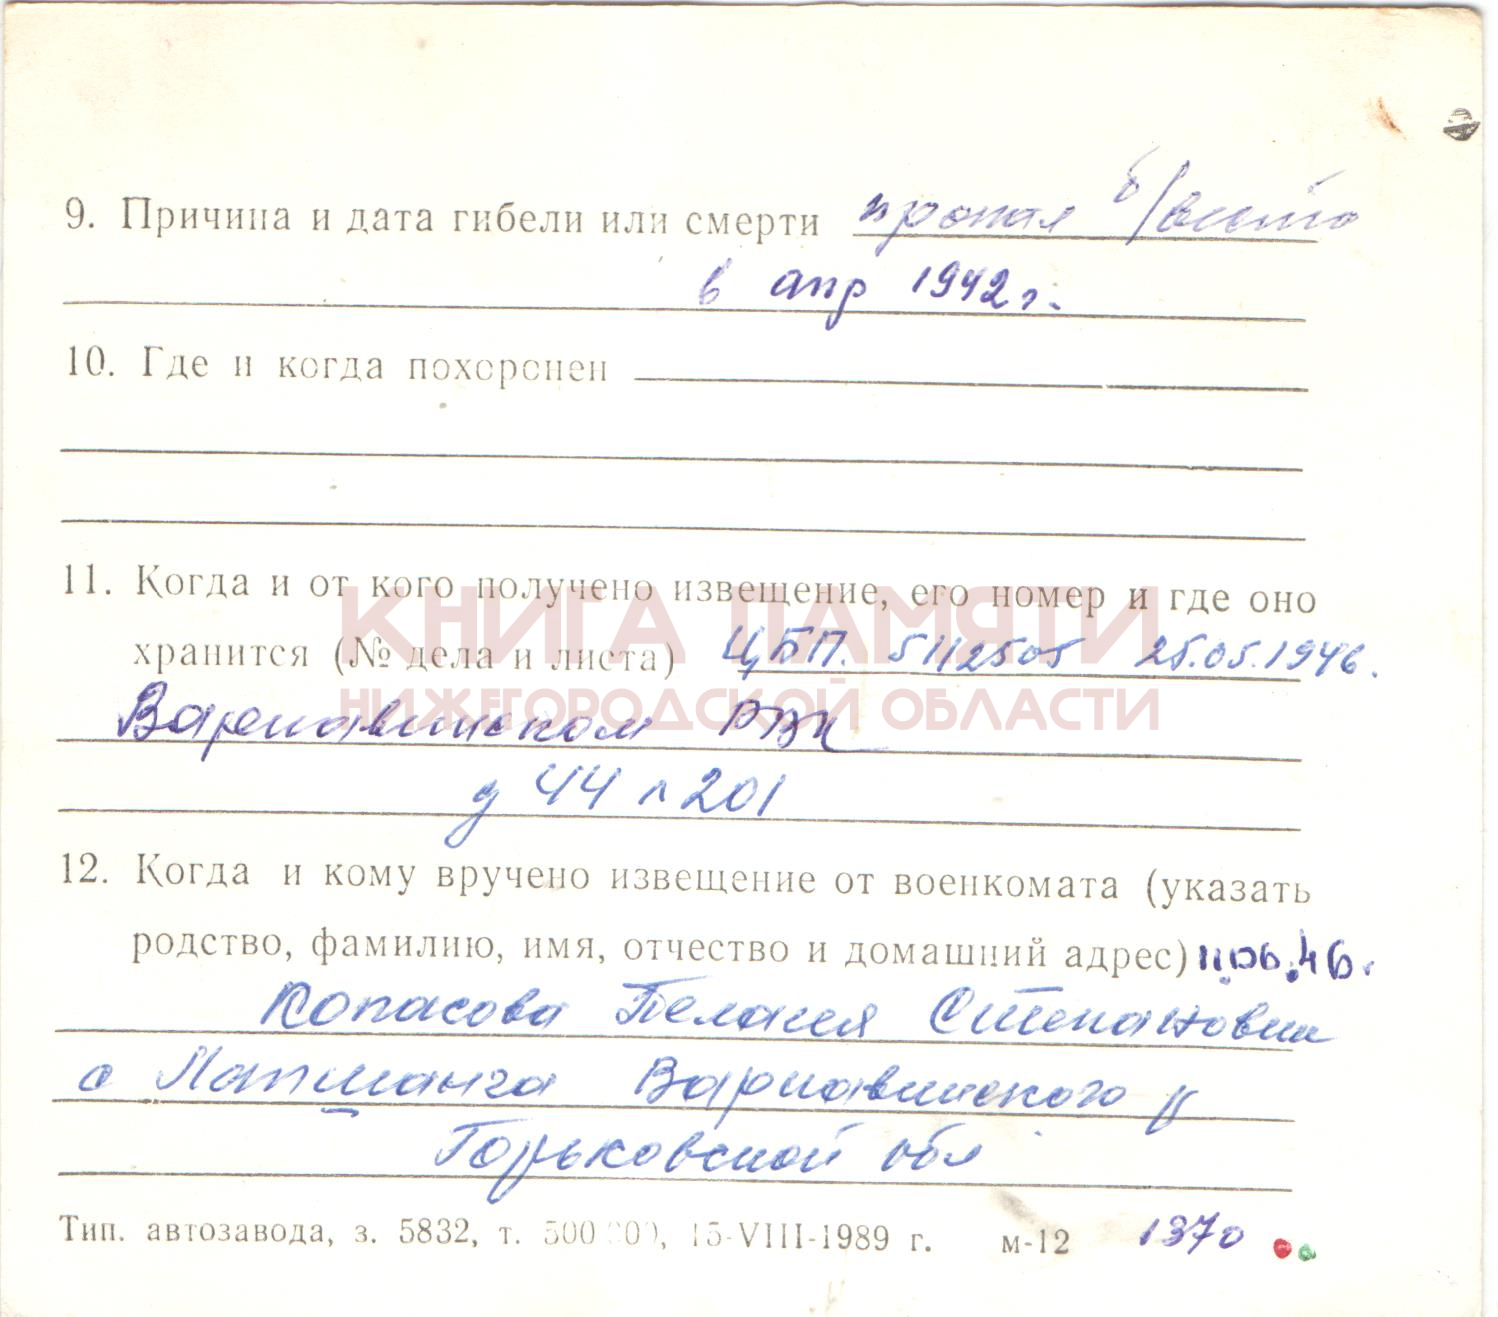 9. Причина и дата гибели или смерти пропал б/вести
в апр 1942 г.
10. Где и когда похоронен
11. Когда и от кого получено извещение, его номер и где оно
хранится (№ дела и листа) ЦБП. 5112505 25.05.1946.
КНИГА ПАМЯТИ
НИЖЕГОРОДСКОЙ ОБЛАСТИ
Варнавинском РВК
д 44 л 201
12. Когда и кому вручено извещение от военкомата (указать
родство, фамилию, имя, отчество и домашний адрес) 11.06.46.
Копасова Пелагея Степановна
с Лапшанга Варнавинского р
Горьковской обл
Тип. автозавода, з. 5832, т. 500 000, 15-VIII-1989 г. м-12 1370